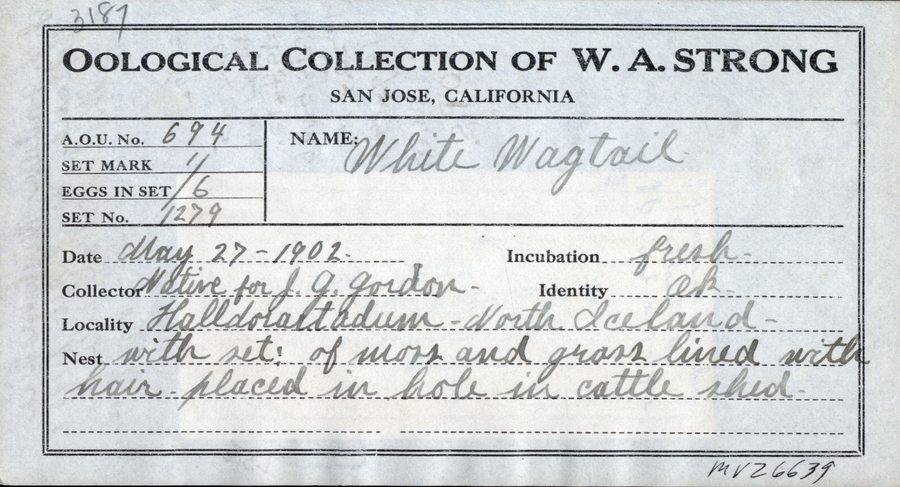 3187
OOLOGICAL COLLECTION OF W. A. STRONG
SAN JOSE, CALIFORNIA
A.O.U. No. 694
NAME: White Wagtail
SET MARK 1/
EGGS IN SET /6
SET No. 1279
Date May 27-1902. Incubation fresh.
Collector Native for J. G. Gordon. Identity ok.
Locality Halldorastadum - North Iceland -
Nest with set: of moss and grass lined with
hair placed in hole in cattle shed.
MVZ6639